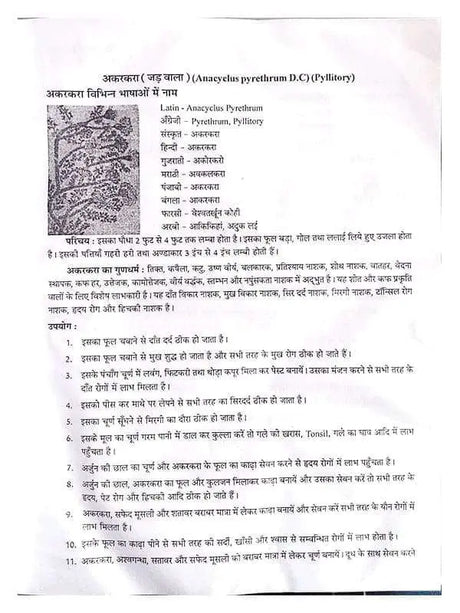 अकरकरा ( जड़ वाला ) (Anacyclus pyrethrum D.C) (Pyllitory)
अकरकरा विभिन्न भाषाओं में नाम
Latin - Anacyclus Pyrethrum
अँग्रेजी – Pyrethrum, Pyllitory
संस्कृत – अकरकरा
हिन्दी – अकरकरा
गुजराती – अकोरकरो
मराठी – अक्कलकरा
पंजाबी – अकरकरा
बंगला – आकरकरा
फारसी – वेश्वतर्खून कोही
अरबी – आकिकिहां, अदुक लई
परिचय : इसका पौधा 2 फुट से 4 फुट तक लम्बा होता है। इसका फूल बड़ा, गोल तथा ललाई लिये हुए उजला होता
है। इसकी पत्तियाँ गहरी हरी तथा अण्डाकार 3 इंच से 4 इंच लम्बी होती हैं।
अकरकरा का गुणधर्म : तिक्त, कषैला, कटु, उष्ण वीर्य, बलकारक, प्रतिश्याय नाशक, शोथ नाशक, वातहर, वेदना
स्थापक, कफ हर, उत्तेजक, कामोत्तेजक, वीर्य बर्द्धक, स्तम्भन और नपुंसकता नाशक में अद्भुत है। यह शीत और कफ प्रकृति
वालों के लिए विशेष लाभकारी है। यह दाँत विकार नाशक, मुख विकार नाशक, सिर दर्द नाशक, मिरगी नाशक, टॉन्सिल रोग
नाशक, हृदय रोग और हिचकी नाशक है।
उपयोग :
1. इसका फूल चबाने से दाँत दर्द ठीक हो जाता है।
2. इसका फूल चबाने से मुख शुद्ध हो जाता है और सभी तरह के मुख रोग ठीक हो जाते हैं।
3. इसके पंचाँग चूर्ण में लवंग, फिटकरी तथा थोड़ा कपूर मिला कर पेस्ट बनायें। उसका मंजन करने से सभी तरह के
दाँत रोगों में लाभ मिलता है।
4. इसको पीस कर माथे पर लेपने से सभी तरह का सिरदर्द ठीक हो जाता है।
5. इसका चूर्ण सूँघने से मिरगी का दौरा ठीक हो जाता है।
6. इसके मूल का चूर्ण गरम पानी में डाल कर कुल्ला करें तो गले की खरास, Tonsil, गले का घाव आदि में लाभ
पहुँचता है।
7. अर्जुन की छाल का चूर्ण और अकरकरा के फूल का काढ़ा सेवन करने से हृदय रोगों में लाभ पहुँचता है।
8. अर्जुन की छाल, अकरकरा का फूल और कुलंजन मिलाकर काढ़ा बनायें और उसका सेवन करें तो सभी तरह के
हृदय, पेट रोग और हिचकी आदि ठीक हो जाते हैं।
9. अकरकरा, सफेद मूसली और शतावर बराबर मात्रा में लेकर काढ़ा बनायें और सेवन करें सभी तरह के यौन रोगों में
लाभ मिलता है।
10. इसके फूल का काढ़ा पीने से सभी तरह की सर्दी, खाँसी और श्वास से सम्बन्धित रोगों में लाभ होता है।
11. अकरकरा, अश्वगन्धा, सतावर और सफेद मूसली को बराबर मात्रा में लेकर चूर्ण बनायें। दूध के साथ सेवन करने